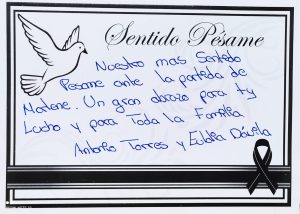 Sentido Pésame
Nuestro mas Sentido
Pesame ante la partida de
Marlene. Un gran abrazo para ty
Lucho y para Toda la Familia
Antonio Torres y Dávila